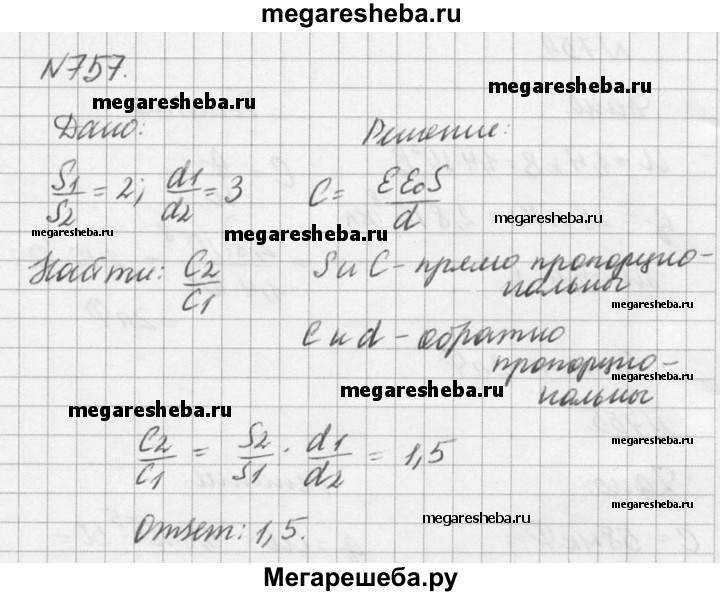 megaresheba.ru
N757.
megaresheba.ru
megaresheba.ru
Дано:
Решение:
S1/S2 = 2; d1/d2 = 3
C = EE0S/d
megaresheba.ru
megaresheba.ru
megaresheba.ru
Найти: C2/C1
S и C - прямо пропорцио-
нальны
megaresheba.ru
C и d - обратно
пропорцио-
нальны
megaresheba.ru
megaresheba.ru
megaresheba.ru
C2/C1 = S2/S1 · d1/d2 = 1,5
megaresheba.ru
Ответ: 1,5.
megaresheba.ru
Мегарешеба.ру